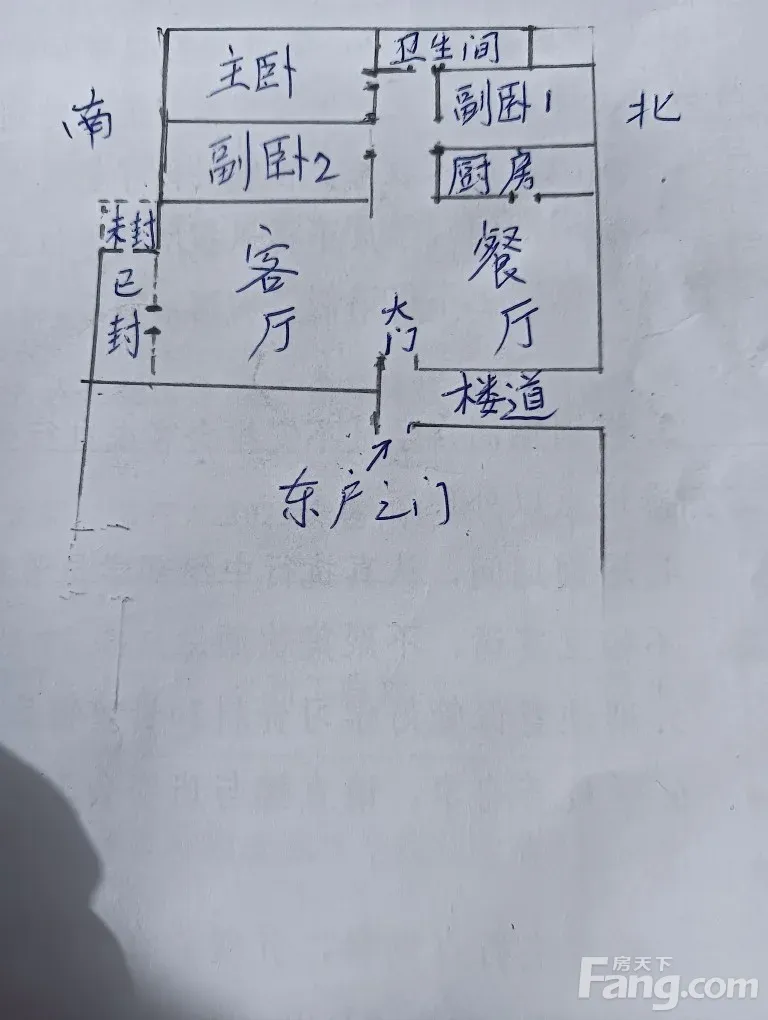 主卧
卫生间
南
副卧1
北
副卧2
厨房
未封
客厅
餐厅
已封
大门
楼道
东户之门
房天下
Fang.com